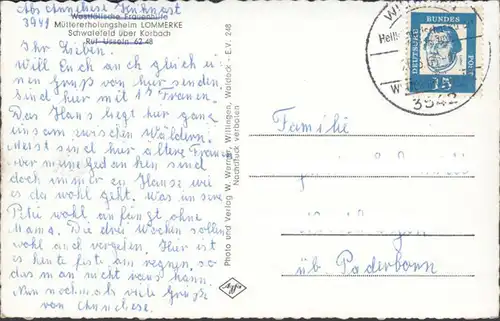 Abs. Anneliese
3541 Westfälische Frauenhilfe
Müttererholungsheim LOMMERKE
Schwalefeld über Korbach
Ruf Usseln 62 48
Ihr Lieben.
Will Euch auch gleich ei
nen Gruß von hier senden.
Sind hier mit 17 Frauen.
Das Haus liegt hier ganz
einsam zwischen Wäldern.
Meist sind hier ältere Frauen
wo meine Gedanken sind
doch immer zu Hause wie
es da wohl geht. Was unsere
Petri wohl anfängt ohne
Mama. Die drei Wochen sollen
wohl auch vergehen. Hier ist
es heute feste am regnen. so
das man nicht raus kann.
Nun nochmals viele Grüße
von Anneliese.
Photo und Verlag W. Werner, Willingen, Waldeck - E.V. 248
Nachdruck verboten
DEUTSCHE BUNDES POST
15
3542
Familie
üb Paderborn